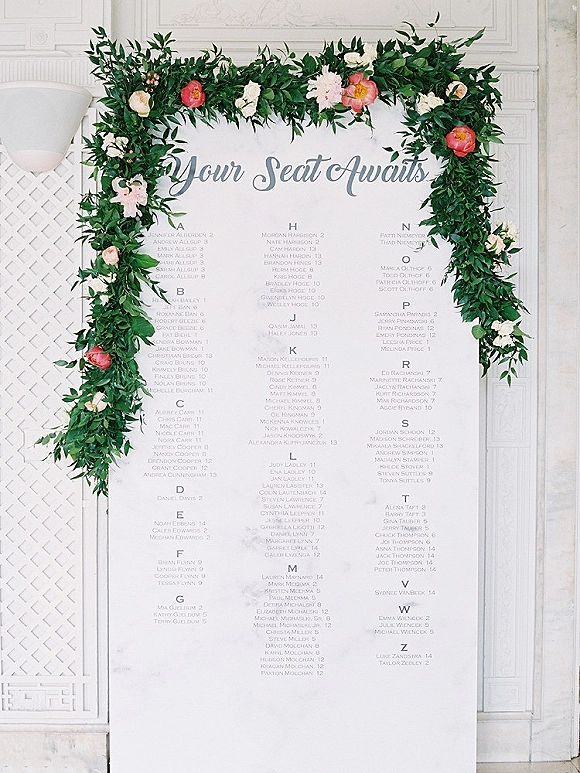 Your Seat Awaits
A
Jennifer Alderden 2
Andrew Allsup 3
Emily Allsup 3
Mark Allsup 3
Shari Allsup 3
Sarah Allsup 3
Carol Allsup 8
B
Bailey 1
Ban 6
Roxanne Ban 6
Robert Beezie 6
Grace Beezie 6
Pat Biehl 1
Kendra Bowman 1
Jake Bowman 1
Christiaan Breus 13
Craig Bruns 10
Kimberly Bruns 10
Finley Bruns 10
Nolan Bruns 10
Michelle Burcham 11
C
Aubrey Carr 11
Chris Carr 11
Mac Carr 11
Nicole Carr 11
Nora Carr 11
Jeffrey Cooper 8
Nancy Cooper 8
Brenndon Cooper 12
Grant Cooper 12
Andrea Cunningham 13
D
Daniel Davis 2
E
Noah Ebbens 14
Caleb Edwards 2
Meghan Edwards 2
F
Brian Flynn 9
Lyndsi Flynn 9
Cooper Flynn 9
Tessa Flynn 9
G
Mia Gjeldum 2
Kathy Gjeldum 5
Terry Gjeldum 5
H
Morgan Harbison 2
Nate Harbison 2
Cam Hardin 13
Hannah Hardin 13
Brandon Hines 13
Herm Hoge 8
Kris Hoge 8
Bradley Hoge 10
Ericka Hoge 10
Gwendelyn Hoge 10
Wesley Hoge 10
J
Qasim Jamal 13
Haley Jones 13
K
Mason Kellefouris 11
Michael Kellefouris 11
Dennis Ketner 9
Rose Ketner 9
Cindy Kimmel 8
Matt Kimmel 8
Michael Kimmel 8
Cheryl Kingman 9
Gil Kingman 9
McKenna Knowles 1
Nick Kowalczyk 7
Jason Krodskow 2
Alexandra Kupfjanczuk 13
L
Judy Ladley 11
Ena Ladley 10
Jan Ladley 11
Lauren Lassiter 13
Colin Lautenbach 14
Steven Lawrence 7
Susan Lawrence 7
Cynthia Leepper 11
Jesse Leepper 10
Gabriella Ligotti 12
Daniel Lynn 7
Margaret Lynn 7
Garret Lytle 14
Caleb Lytzenga 12
M
Lauren Maynard 14
Mark Meedma 2
Kristen Meekma 5
Paul Meekma 5
Debra Michalski 8
Elizabeth Michalski 12
Michael Michalski, Sr. 8
Michael Michalski, Jr. 12
Christa Miller 5
Steve Miller 5
David Molchan 8
Karyl Molchan 8
Hudson Molchan 12
Keagan Molchan 12
Paxton Molchan 12
N
Patti Niemeyer
Thad Niemeyer
O
Marla Olthof 6
Todd Olthof 6
Patricia Olthoff 6
Scott Olthoff 6
P
Samantha Paradis 2
Jerry Pinkowski 6
Ryan Pondinas 12
Emery Pondinas 12
Leesha Price 1
Melinda Price 1
R
Ed Rachanski 7
Marinette Rachanski 7
Jaclyn Rachanski 7
Kurt Richardson 7
Mimi Richardson 7
Aggie Ryband 10
S
Jordan Schoon 12
Madison Schreiber 13
Mikaela Shackelford 13
Andrew Simpson 1
Madalyn Stamper 1
Khloe Stover 1
Steven Suttles 9
Tonya Suttles 9
T
Alena Taft 3
Barry Taft 3
Gina Tauber 5
Jerry Tauber 5
Chuck Thompson 6
Joi Thompson 6
Anna Thompson 14
Jack Thompson 14
Joe Thompson 14
Peter Thompson 14
V
Sydnee VanBeek 14
W
Emma Wiencek 2
Julie Wiencek 5
Michael Wiencek 5
Z
Luke Zandstra 14
Taylor Zedley 2